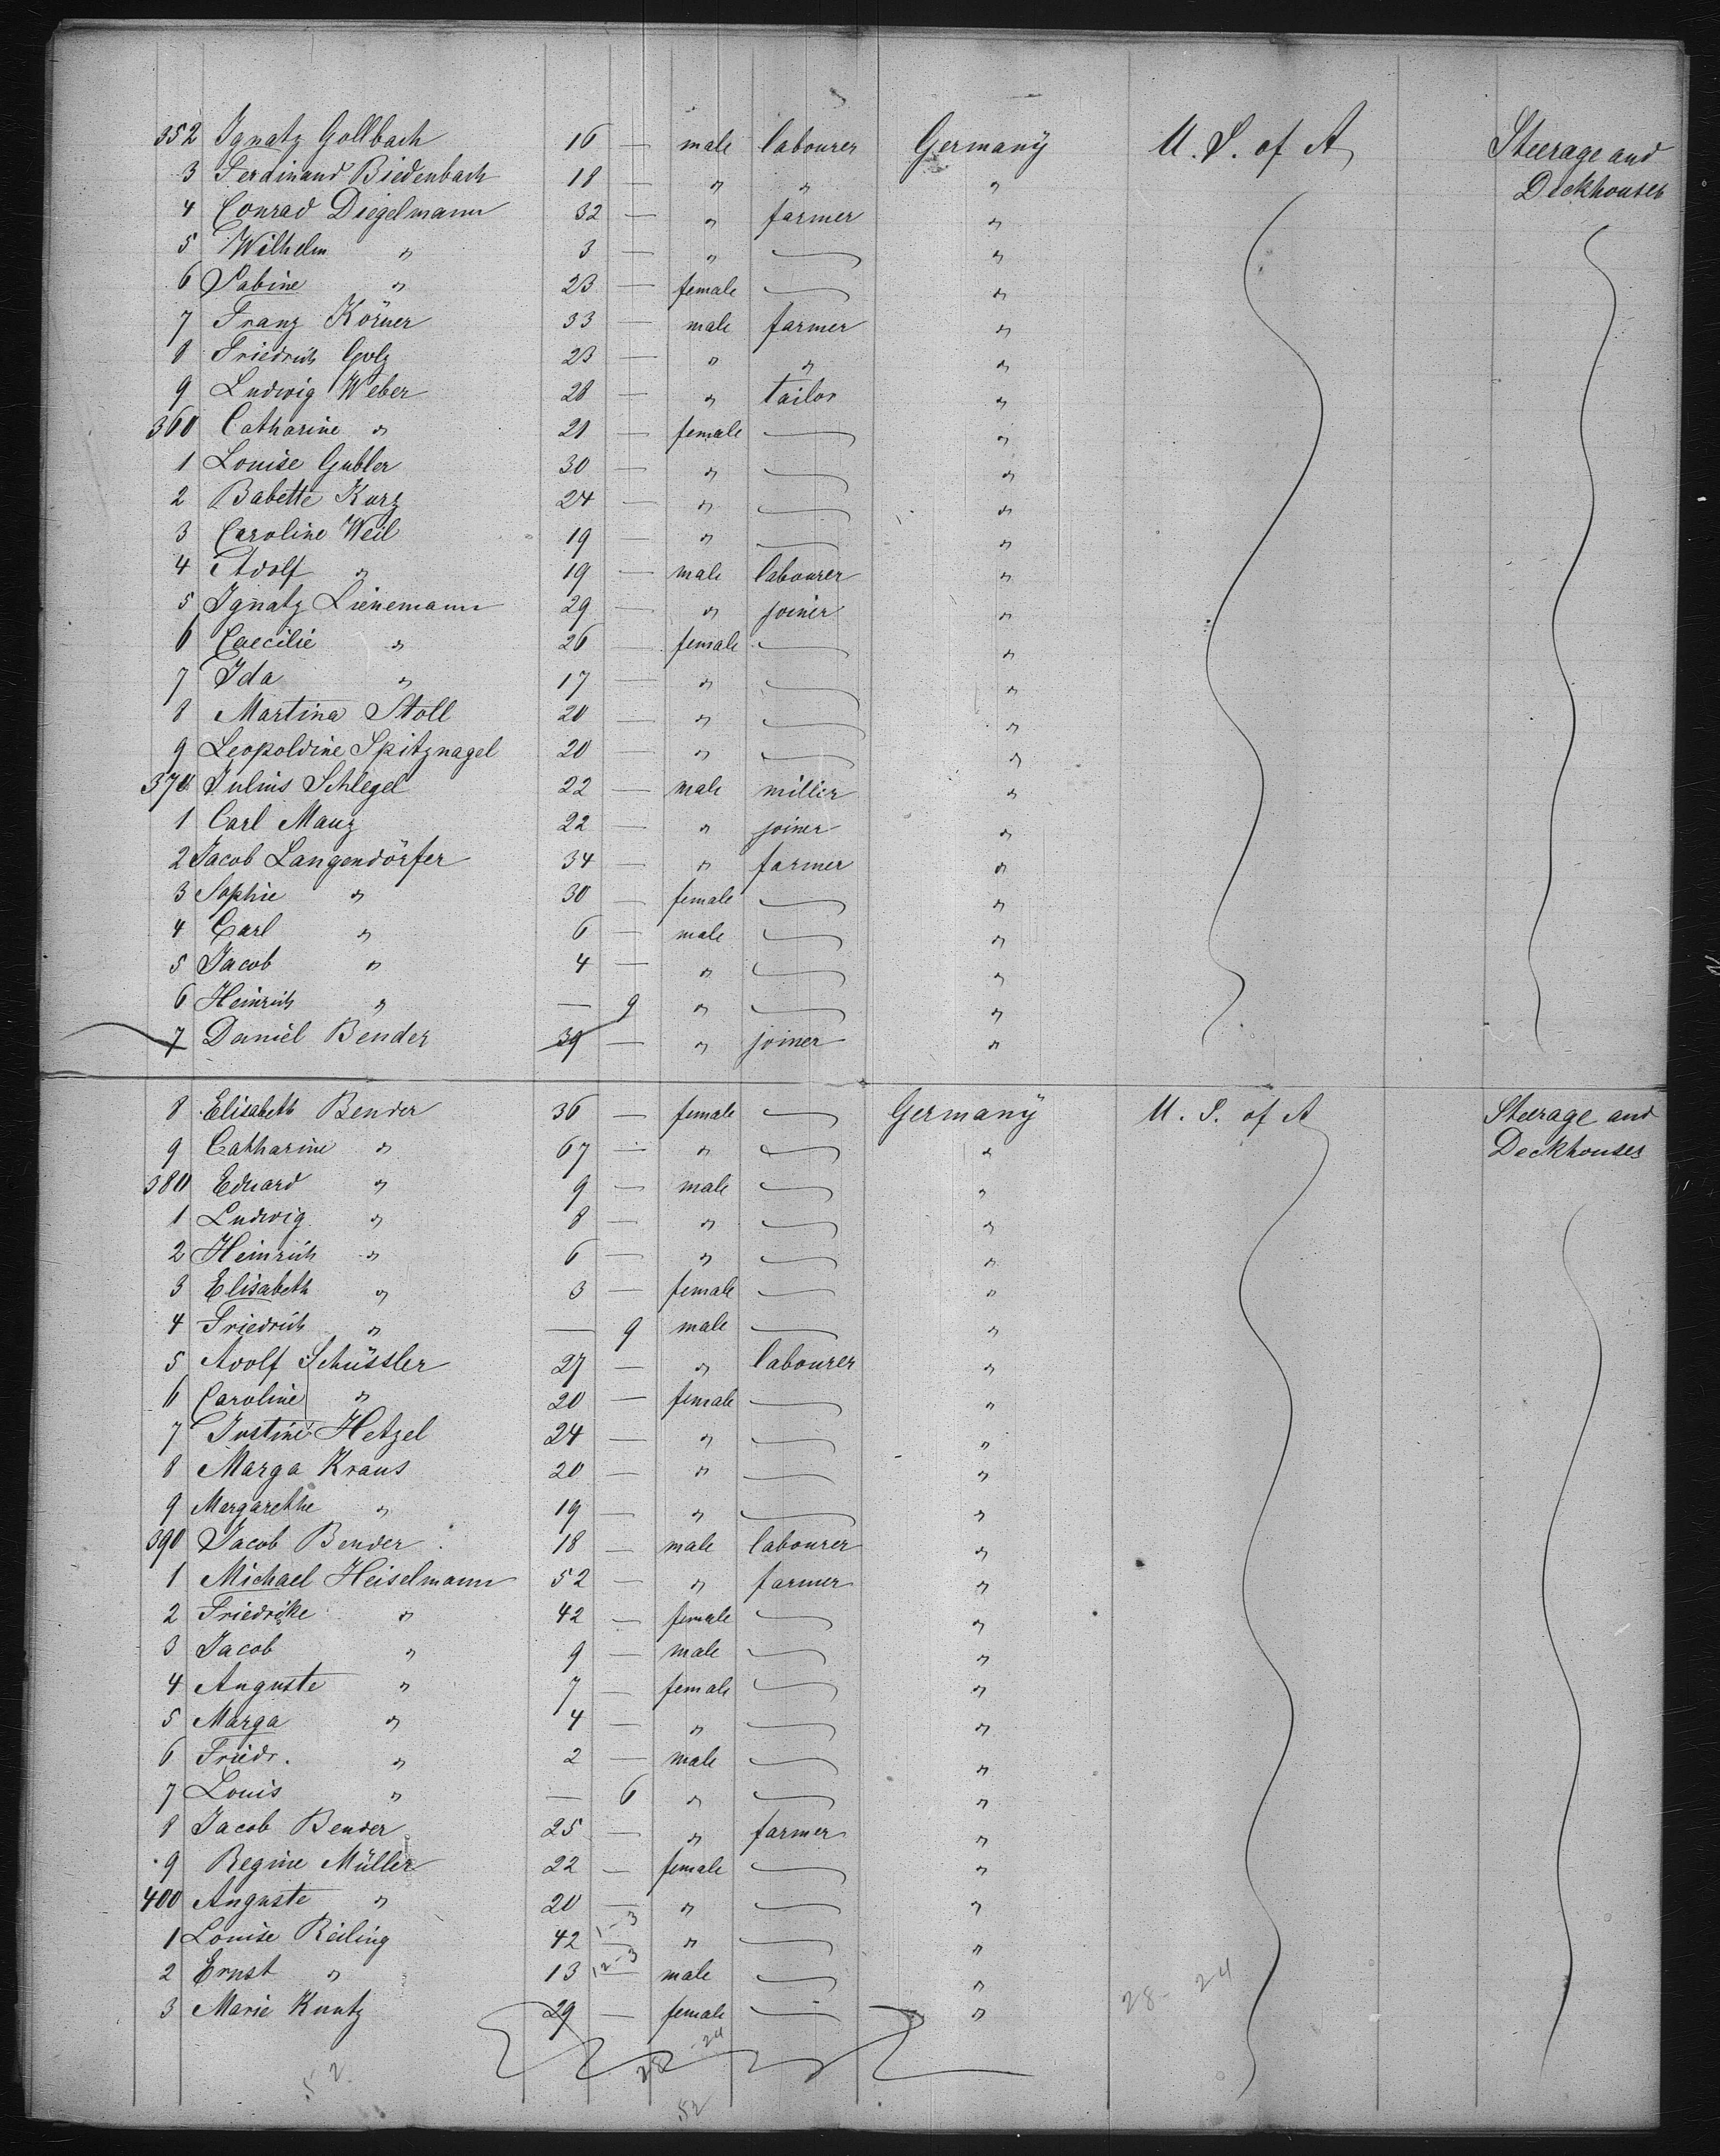 352 Ignatz Gollbach 16 — male labourer Germany U. S. of A Steerage and
3 Ferdinand Biedenbach 18 — " " " Deckhouses
4 Conrad Diegelmann 32 — " farmer "
5 Wilhelm " 3 — " — "
6 Sabine " 23 — female — "
7 Franz Körner 33 — male farmer "
8 Friedrich Golz 23 — " " "
9 Ludwig Weber 28 — " tailor "
360 Catharine " 21 — female — "
1 Louise Gubler 30 — " — "
2 Babette Kurz 24 — " — "
3 Caroline Weil 19 — " — "
4 Adolf " 19 — male labourer "
5 Ignatz Lienemann 29 — " joiner "
6 Caecilie " 26 — female — "
7 Ida " 17 — " — "
8 Martina Stoll 20 — " — "
9 Leopoldine Spitznagel 20 — " — "
370 Julius Schlegel 22 — male miller "
1 Carl Mauz 22 — " joiner "
2 Jacob Langendörfer 34 — " farmer "
3 Sophie " 30 — female — "
4 Carl " 6 — male — "
5 Jacob " 4 — " — "
6 Heinrich " — 9 " — "
7 Daniel Bender 39 — " joiner "
8 Elisabeth Bender 36 — female — Germany U. S. of A Steerage and
9 Catharine " 67 — " — " Deckhouses
380 Eduard " 9 — male — "
1 Ludwig " 8 — " — "
2 Heinrich " 6 — " — "
3 Elisabeth " 3 — female — "
4 Friedrich " — 9 male — "
5 Adolf Schüssler 27 — " labourer "
6 Caroline " 20 — female — "
7 Justine Hetzel 24 — " — "
8 Marga Kraus 20 — " — "
9 Margarethe " 19 — " — "
390 Jacob Bender 18 — male labourer "
1 Michael Heiselmann 52 — " farmer "
2 Friedrike " 42 — female — "
3 Jacob " 9 — male — "
4 Auguste " 7 — female — "
5 Marga " 4 — " — "
6 Friedr. " 2 — male — "
7 Louis " — 6 " — "
8 Jacob Bender 25 — " farmer "
9 Regine Müller 22 — female — "
400 Auguste " 20 — " — "
1 Louise Reiling 42 1-3 " — "
2 Ernst " 13 12-3 male — "
3 Marie Kuntz 29 — female — " 28- 24
52 28 24
52